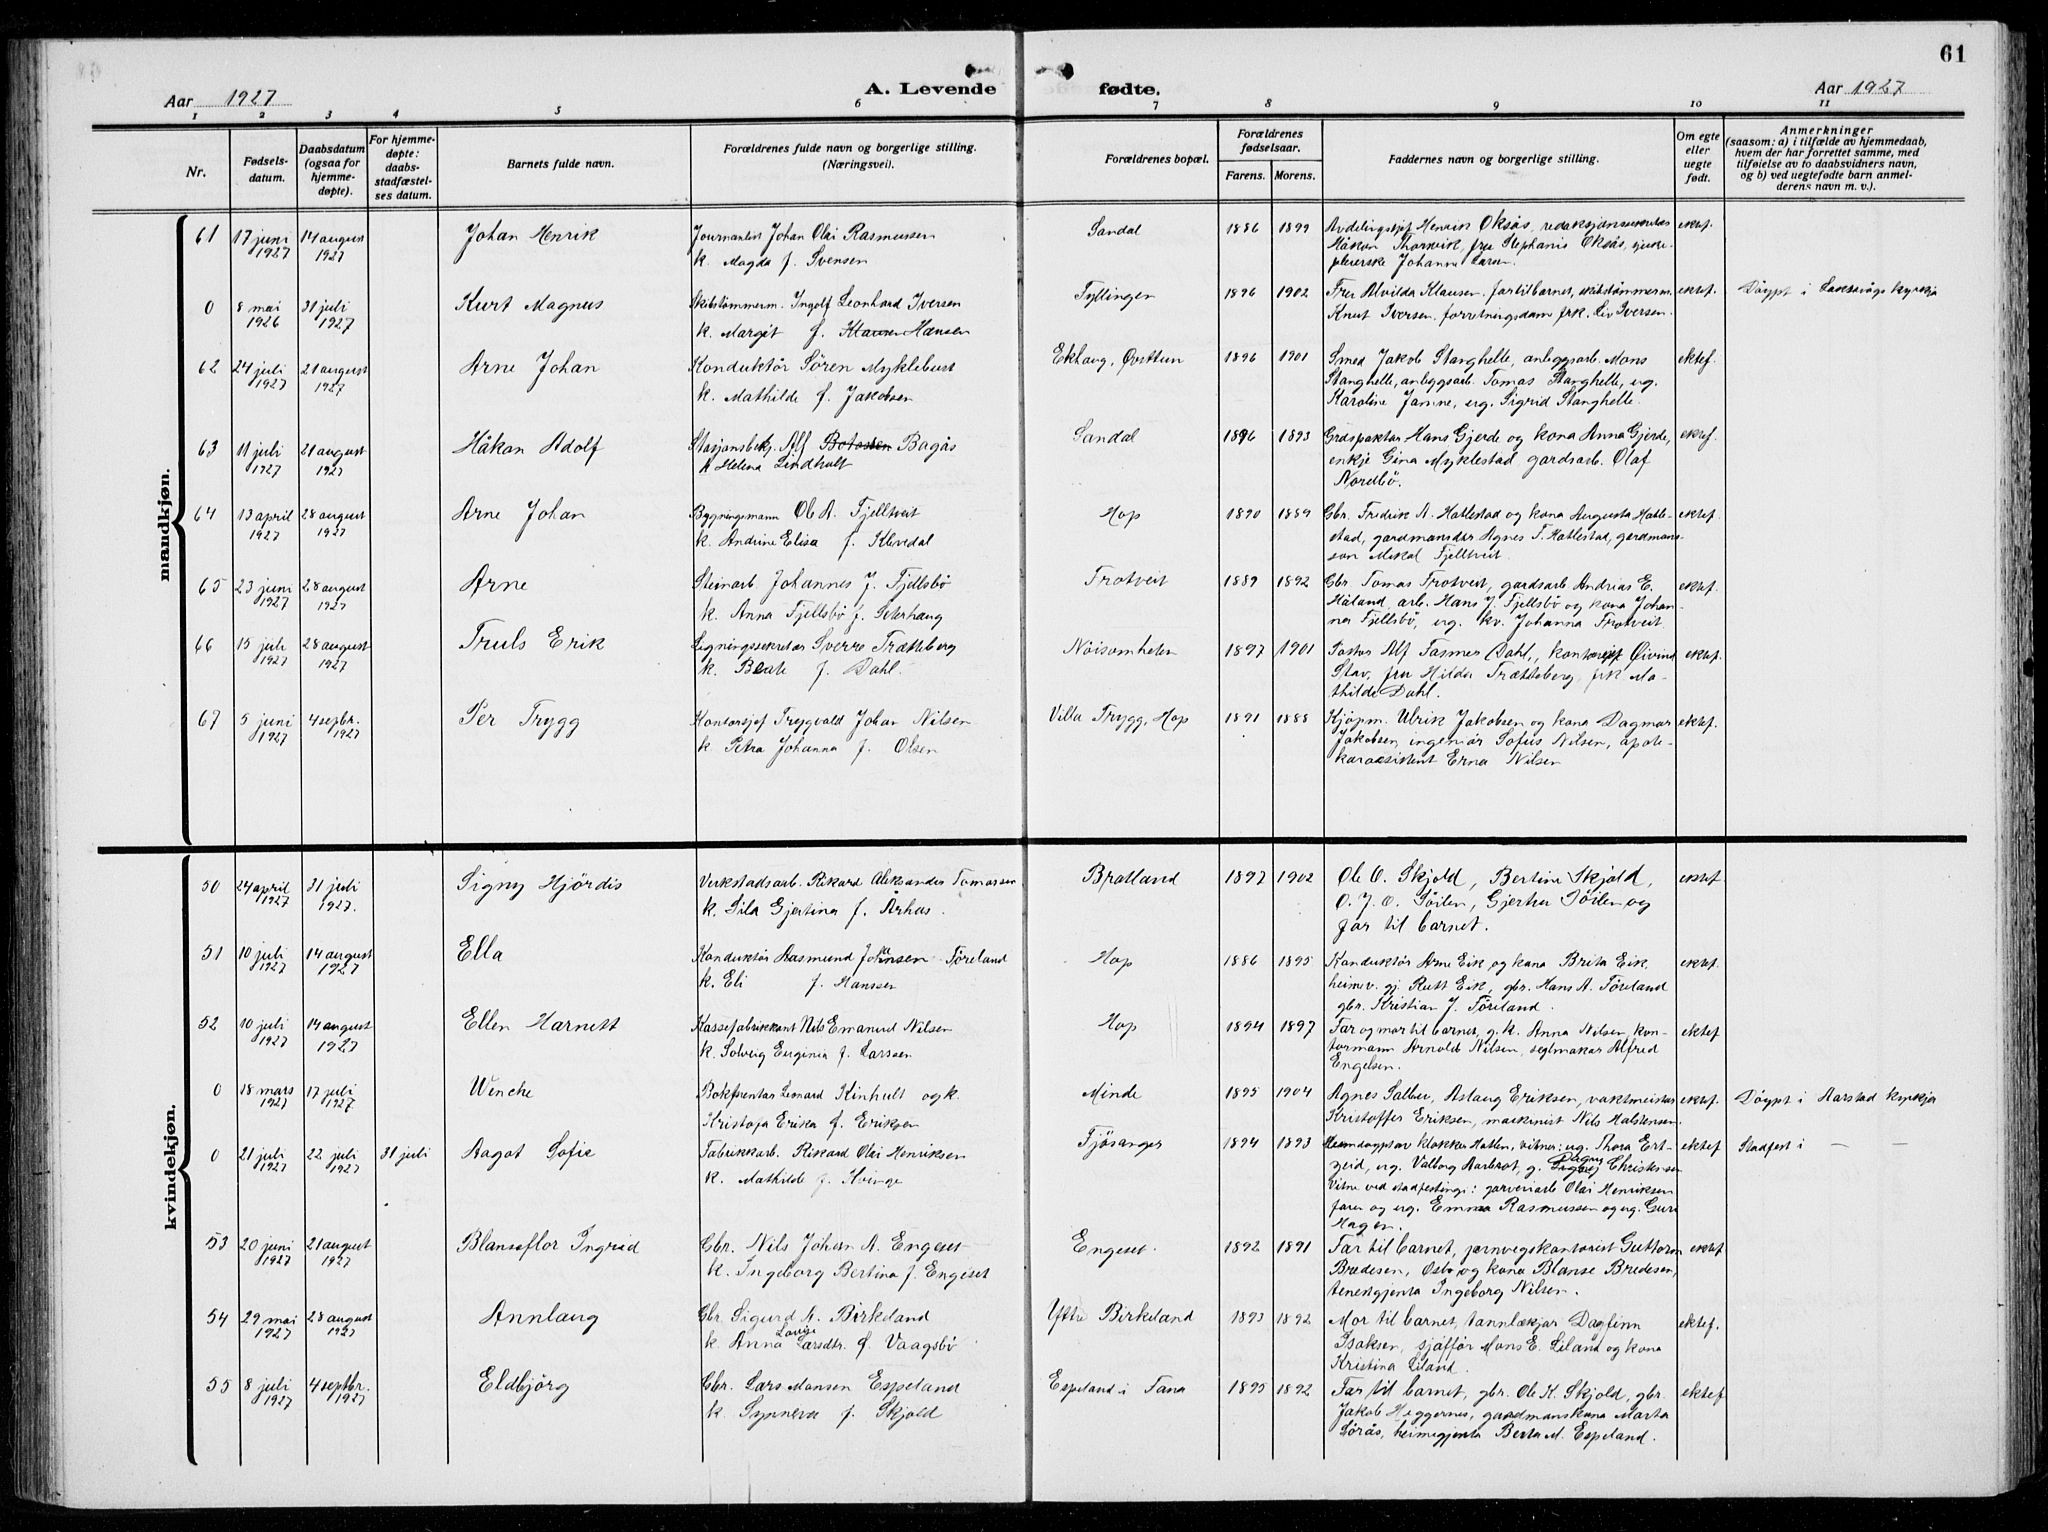 61
Aar 1927
A. Levende fødte.
Aar 1927
1 2 3 4 5 6 7 8 9 10 11
Nr.
Fødsels-
datum.
Daabsdatum
(ogsaa for
hjemme-
døpte).
For hjemme-
døpte:
daabs-
stadfæstel-
ses datum.
Barnets fulde navn.
Forældrenes fulde navn og borgerlige stilling.
(Næringsvei).
Forældrenes bopæl.
Forældrenes
fødselsaar.
Farens. Morens.
Faddernes navn og borgerlige stilling.
Om egte
eller
uegte
født.
Anmerkninger
(saasom: a) i tilfælde av hjemmedaab,
hvem der har forrettet samme, med
tilføielse av to daabsvidners navn,
og b) ved uegtefødte barn anmel-
derens navn m. v.).
mandkjøn.
61 17 juni 1927 14 august 1927 Johan Henrik
Journalist Johan Olai Rasmussen
k. Magda f. Svensen
Sandal 1886 1899
Avdelingssjef Henrik Oksås, redaksjonssekretær
Håkon Thorvik, fru Stephanie Oksås, sjuke-
pleierske Johanne Larsen.
ektef.
0 8 mai 1926 31 juli 1927 Kurt Magnus
Skibstømmerm. Ingolf Leonhard Iversen
k. Margit f. Klausen Hansen
Tyllingen 1896 1902
Fru Alvilda Klausen, far til barnet, skibstømmerm.
Knut Iversen, forretningsdame frk. Liv Iversen.
ektef. Døypt i Laksevågs kyrkja
62 24 juli 1927 21 august 1927 Arne Johan
Konduktør Søren Myklebust
k. Mathilde f. Jakobsen
Ekhaug, Øvsttun 1896 1901
Smed Jakob Stanghelle, anleggsarb. Mons
Stanghelle, anleggsarb. Tomas Stanghelle, ug.
Karoline Janne, ug. Sigrid Stanghelle.
ektef.
63 11 juli 1927 21 august 1927 Håkon Adolf
Stasjonsbetj. Alf Bagås
k Helena Lindhult
Sandal 1896 1893
Hans Gjerde og kona Anna Gjerde,
enkje Gina Myklestad, gardsarb. Olaf
Nordbø.
ektef.
64 13 april 1927 28 august 1927 Arne Johan
Bygningsmann Ole A. Fjelltveit
k. Andrine Elisa f. Klevdal
Hop 1890 1889
Gbr. Fredrik A. Hatlestad og kona Augusta Hatle-
stad, gardmansdtr Agnes T. Hatlestad, gardmans-
son Mikal Fjelltveit.
ektef.
65 23 juni 1927 28 august 1927 Arne
Steinarb. Johannes J. Fjellsbø
k. Anna Fjellsbø f. Seterhaug
Trotveit 1889 1892
Gbr. Tomas Trotveit, gardsarb Andrias E.
Håland, arb. Hans J. Fjellsbø og kona Johan-
na Fjellsbø, ug. kv. Johanna Trotveit
ektef.
66 15 juli 1927 28 august 1927 Truls Erik
Ligningssekretær Sverre Trætteberg
k. Beate f. Dahl.
Nøisomheten 1897 1901
Pastor Alf Fasmer Dahl, kontorsjef Øivind
Stav, fru Hilda Trætteberg, frk Ma-
thilde Dahl.
ektef.
67 5 juni 1927 4 septbr. 1927 Per Trygg
Kontorsjef Trygvald Johan Nilsen
k Petra Johanna f. Olsen
Villa Trygg, Hop 1891 1888
Kjøpm. Ulrik Jakobsen og kona Dagmar
Jakobsen, ingeniør Sofus Nilsen, apote-
karassistent Erna Nilsen
ektef.
kvindekjøn.
50 24 april 1927 31 juli 1927. Signy Hjördis
Verkstadsarb. Rikard Aleksander Tomassen
k. Sila Gjertina f. Århus.
Bratland 1897 1902
Ole O. Skjold, Bertina Skjold,
O. J. O. Søilen, Gjertru Søilen og
far til barnet.
ektef
51 10 juli 1927 14 august 1927 Ella
Konduktør Aasmund Johansen Føreland
k. Eli f. Hanssen
Hop 1886 1895
Konduktør Arne Eik, og kona Brita Eik,
heimv. gj. Rutt Eik, gbr. Hans A. Føreland
gbr. Kristian J. Føreland.
ektef.
52 10 juli 1927 14 august 1927 Ellen Harnett
Kassefabrikkant Nils Emanuel Nilsen
k. Solveig Euginia f. Larssen
Hop 1894 1897
Far og mor til barnet, g. k. Anna Nilsen, kon-
tormann Arnold Nilsen, seglmakar Alfred
Engelsen.
ektef
0 18 mars 1927 17 juli 1927. Wenche
Leonard Kinhult og k.
Kristofa Erika f. Eriksen
Minde 1895 1904
Agnes Aslaug Eriksen, vaktmeister
Kristoffer Eriksen, maskinist Nils Halstensen.
ektef. Døypt i Aarstad kyrkja
0 21 juli 1927 22 juli 1927 31 juli Aagot Sofie
Fabrikkarb. Rikard Olai Henriksen
k. Mathilde f. Kvinge
Fjøsanger 1894 1893
Heimdøypt av klokkar Hatlen, vitner: ug. Thora Ert-
zeid, ug. Valborg Aarbrot, g. Dagny Christensen
Vitne ved stadfestingi: garveriarb Olai Henriksen
faren og ug. Emma Rasmussen og ug. Guri
Hagen.
ektef Stadfest i — —
53 20 juni 1927 21 august 1927 Blanseflor Ingrid
Gbr. Nils Johan A. Engeset
k. Ingeborg Bertina f. Engeset
Engeset. 1892 1891
Far til barnet, jernvegskontorist Guttorm
Bredesen, Osbø, og kona Blanse Bredesen,
tenestgjenta Ingeborg Nilsen.
ektef
54 29 mai 1927 28 august 1927 Annlaug
Gbr. Sigurd A. Birkeland
k. Anna Lovise Larsdtr. f. Vaagsbø
Yttre Birkeland 1893 1892
Mor til barnet, tannlækjar Dagfinn
Isaksen, sjåffør Mons E. Liland og kona
Kristina Liland.
ektef.
55 8 juli 1927 4 septbr. 1927 Eldbjörg
Gbr. Lars Monsen Espeland
k. Synneva f. Skjold
Espeland i Fana 1895 1892
Far til barnet, gbr. Ole K. Skjold, gbr.
Jakob Heggernes, gardmanskona Marta
Sørås, heimegjenta Berta M. Espeland.
ektef